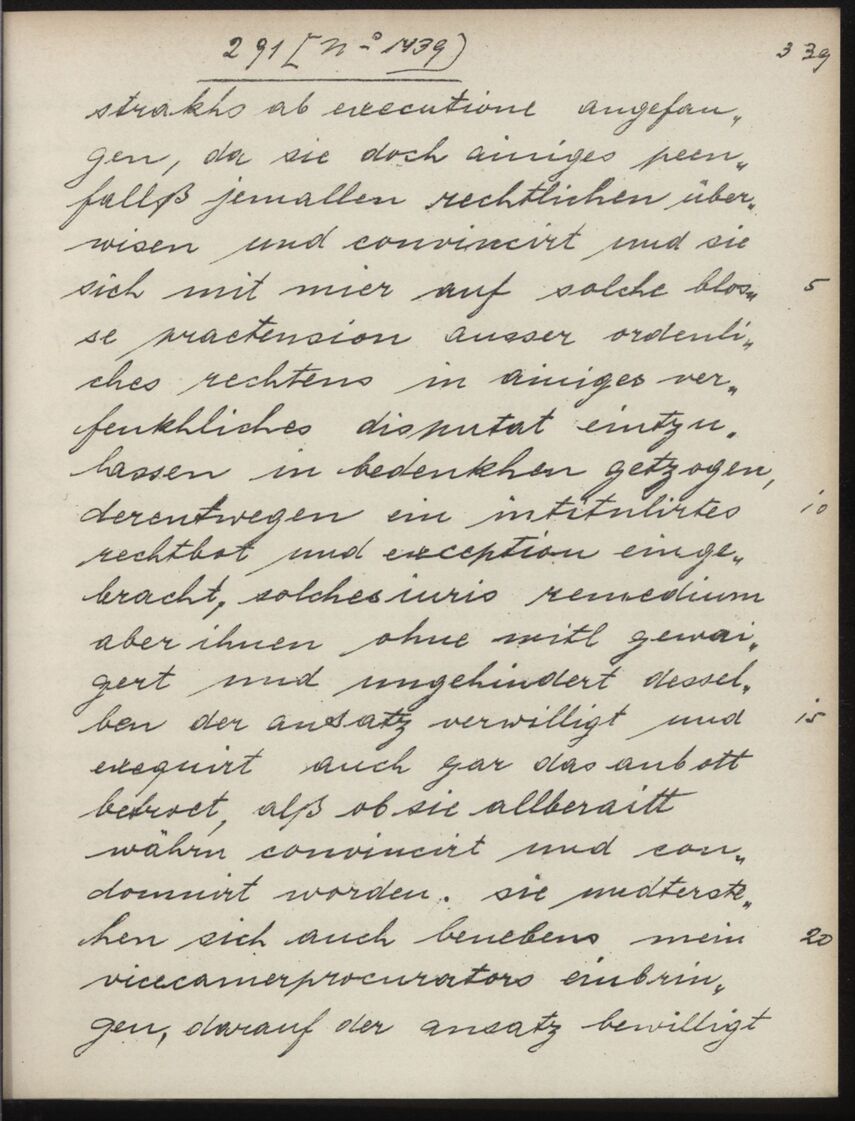 291 [N-o 1439) 339
strakhs ab executione angefan„
gen, da sie doch ainiges peen„
fallß jemallen rechtlichen über„
wisen und convincirt und sie
sich mit mier auf solche blos„ 5
se praetension ausser ordenli„
ches rechtens in ainiges ver„
fenkhliches disputat eintzu„
lassen in bedenkhen getzogen,
derentwegen ein intitulirtes 10
rechtbot und exception einge„
bracht, solches iuris remedium
aber ihnen ohne mitl gewai„
gert und ungehindert dessel„
ben der ansatz verwilligt und 15
exequirt auch gar das anbott
betroet, alß ob sie allberaitt
währn convincirt und con„
domnirt worden. sie undterste„
hen sich auch benebens mein 20
vicecamerprocurators einbrin„
gen, darauf der ansatz bewilligt